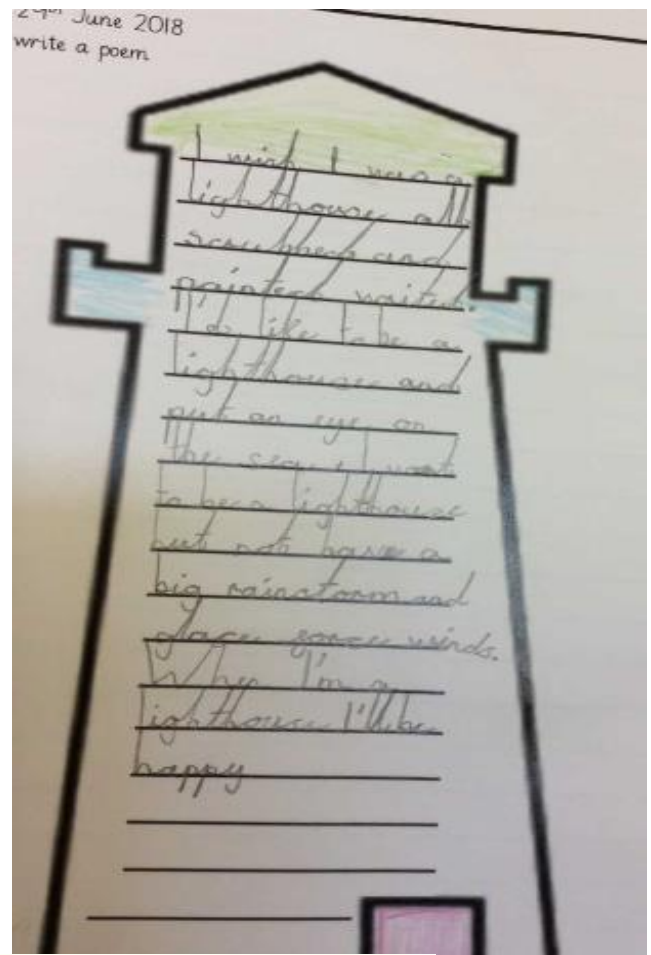 June 2018
write a poem
I wish I was a
lighthouse all
scrubbed and
painted waited.
I'd like to be a
lighthouse and
put an eye on
the sea I want
to be a lighthouse
but not have a
big rainstorm and
winds.
When I'm a
lighthouse I'll be
happy